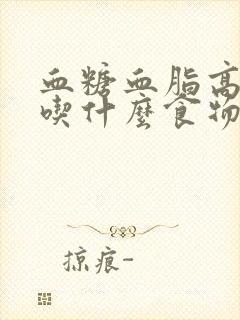 血糖血脂高
喫什麼食物
掠痕-